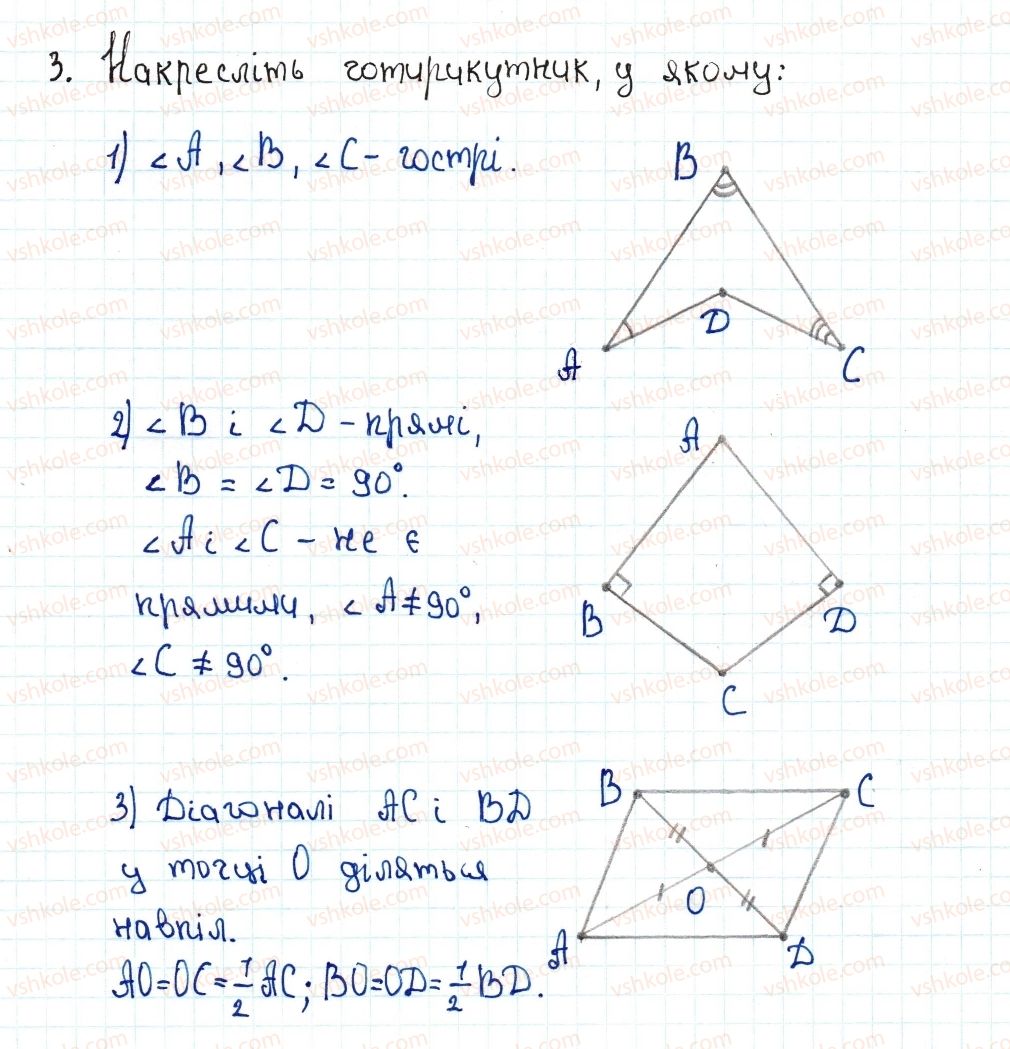 3. Накресліть чотирикутник, у якому:
1) ∠A, ∠B, ∠C - гострі.
B
D
A
C
2) ∠B і ∠D - прямі,
∠B = ∠D = 90°.
∠A і ∠C - не є
прямими, ∠A ≠ 90°,
∠C ≠ 90°.
A
B
D
C
3) Діагоналі AC і BD
у точці O діляться
навпіл.
AO = OC = 1/2 AC; BO = OD = 1/2 BD.
B
C
O
A
D
vshkole.com